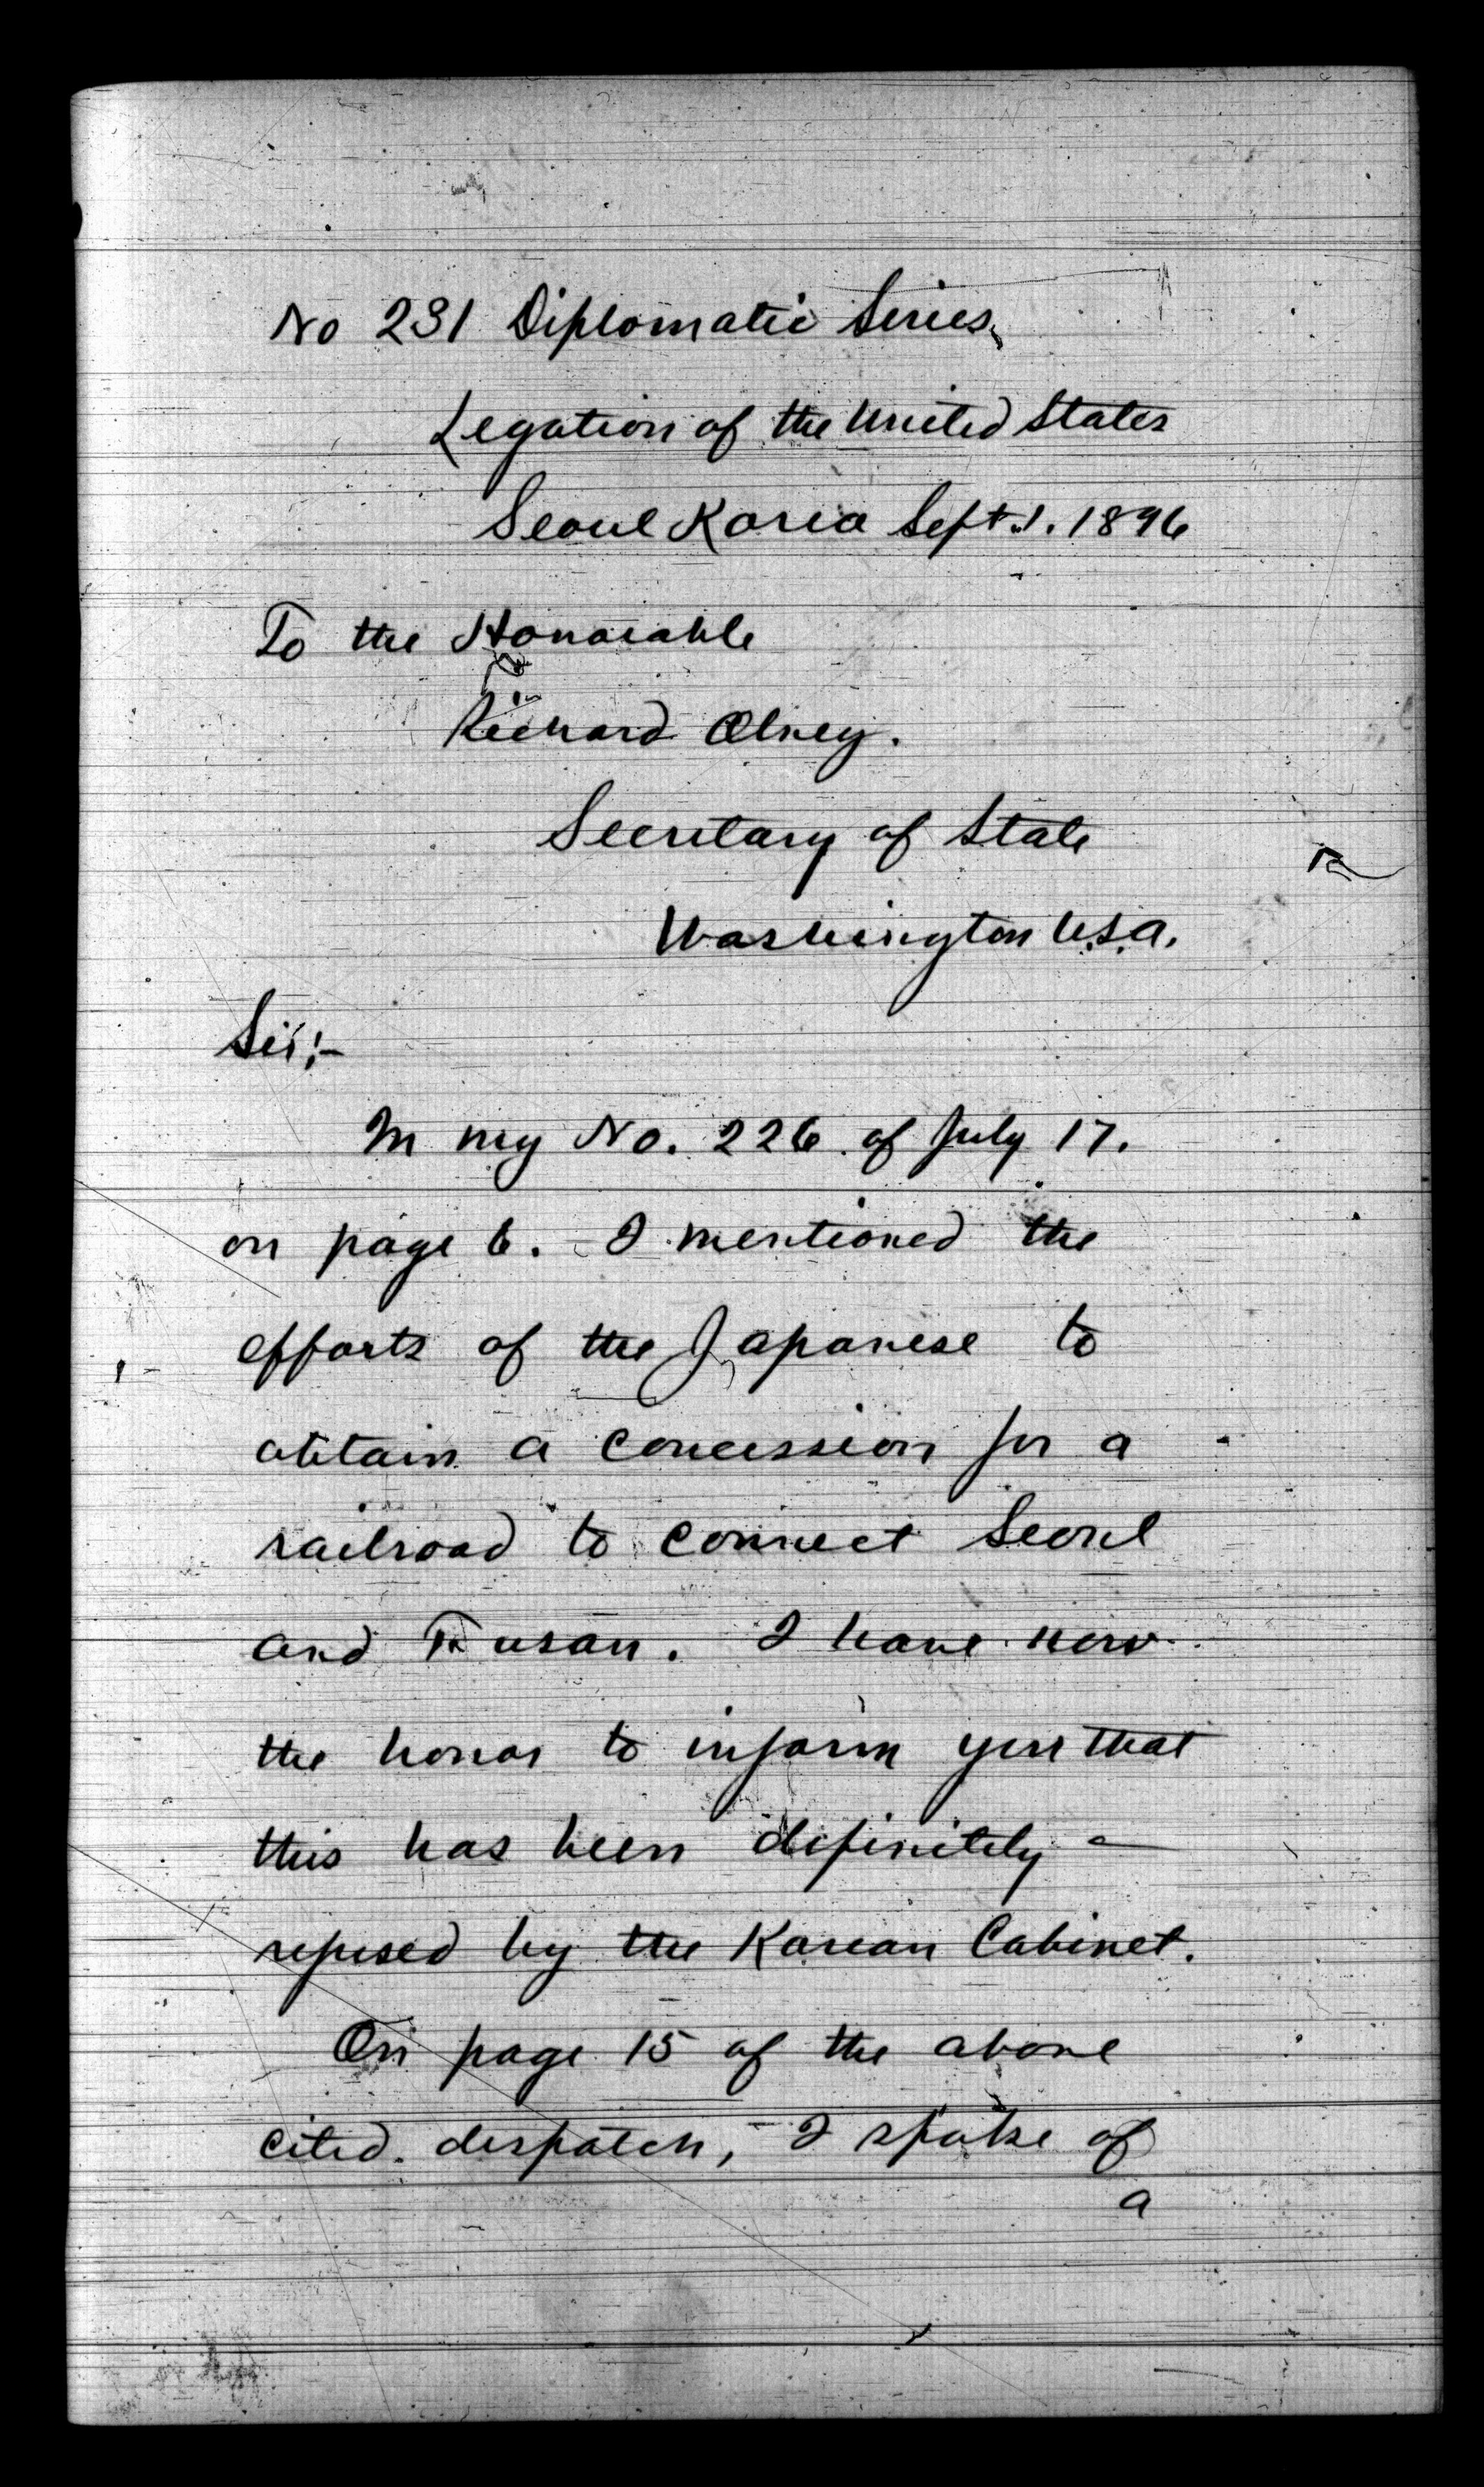 No 231 Diplomatic Series,
Legation of the United States
Seoul Korea Sept. 1. 1896
To the Honorable
Richard Olney.
Secretary of State
Washington U.S.A.
Sir;-
In my No. 226 of July 17.
on page 6. I mentioned the
efforts of the Japanese to
obtain a concession for a
railroad to connect Seoul
and Fusan. I have now
the honor to inform you that
this has been definitely -
refused by the Korean Cabinet.
On page 15 of the above
cited despatch, I spoke of
a